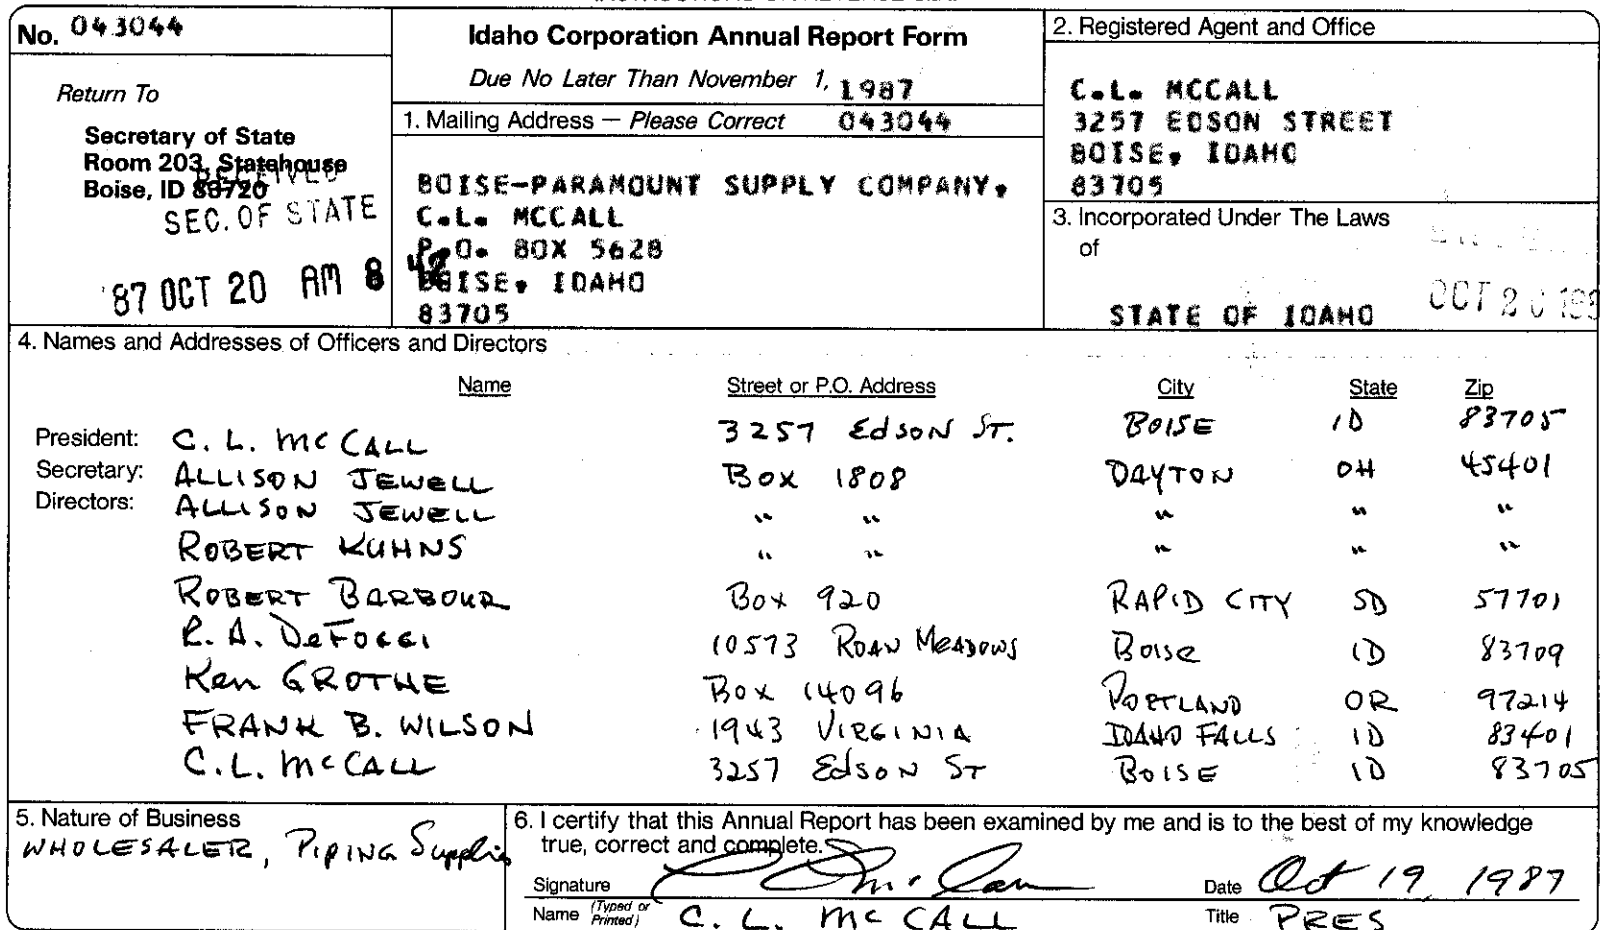 No. 043044
Return To
Secretary of State
Room 203, Statehouse
Boise, ID 83720
RECEIVED
SEC. OF STATE
'87 OCT 20 AM 8 42
Idaho Corporation Annual Report Form
Due No Later Than November 1, 1987
1. Mailing Address — Please Correct 043044
BOISE-PARAMOUNT SUPPLY COMPANY,
C.L. MCCALL
P.O. BOX 5628
BOISE, IDAHO
83705
2. Registered Agent and Office
C.L. MCCALL
3257 EDSON STREET
BOISE, IDAHO
83705
3. Incorporated Under The Laws
of
STATE OF IDAHO
OCT 20
4. Names and Addresses of Officers and Directors
Name Street or P.O. Address City State Zip
President: C. L. McCALL 3257 EdSON ST. BOISE ID 83705
Secretary: ALLISON JEWELL BOX 1808 DAYTON OH 45401
Directors: ALLISON JEWELL " " " " "
ROBERT KUHNS " " " " "
ROBERT BARBOUR Box 920 RAPID CITY SD 57701
R. A. DeFOGGI 10573 ROAN MEADOWS Boise ID 83709
Ken GROTHE Box 14096 PORTLAND OR 97214
FRANK B. WILSON 1943 VIRGINIA IDAHO FALLS ID 83401
C.L. McCALL 3257 EdSON ST BOISE ID 83705
5. Nature of Business
WHOLESALER, PIPING Supplies
6. I certify that this Annual Report has been examined by me and is to the best of my knowledge
true, correct and complete.
Signature C L McCall Date Oct 19, 1987
Name (Typed or Printed) C. L. McCALL Title PRES